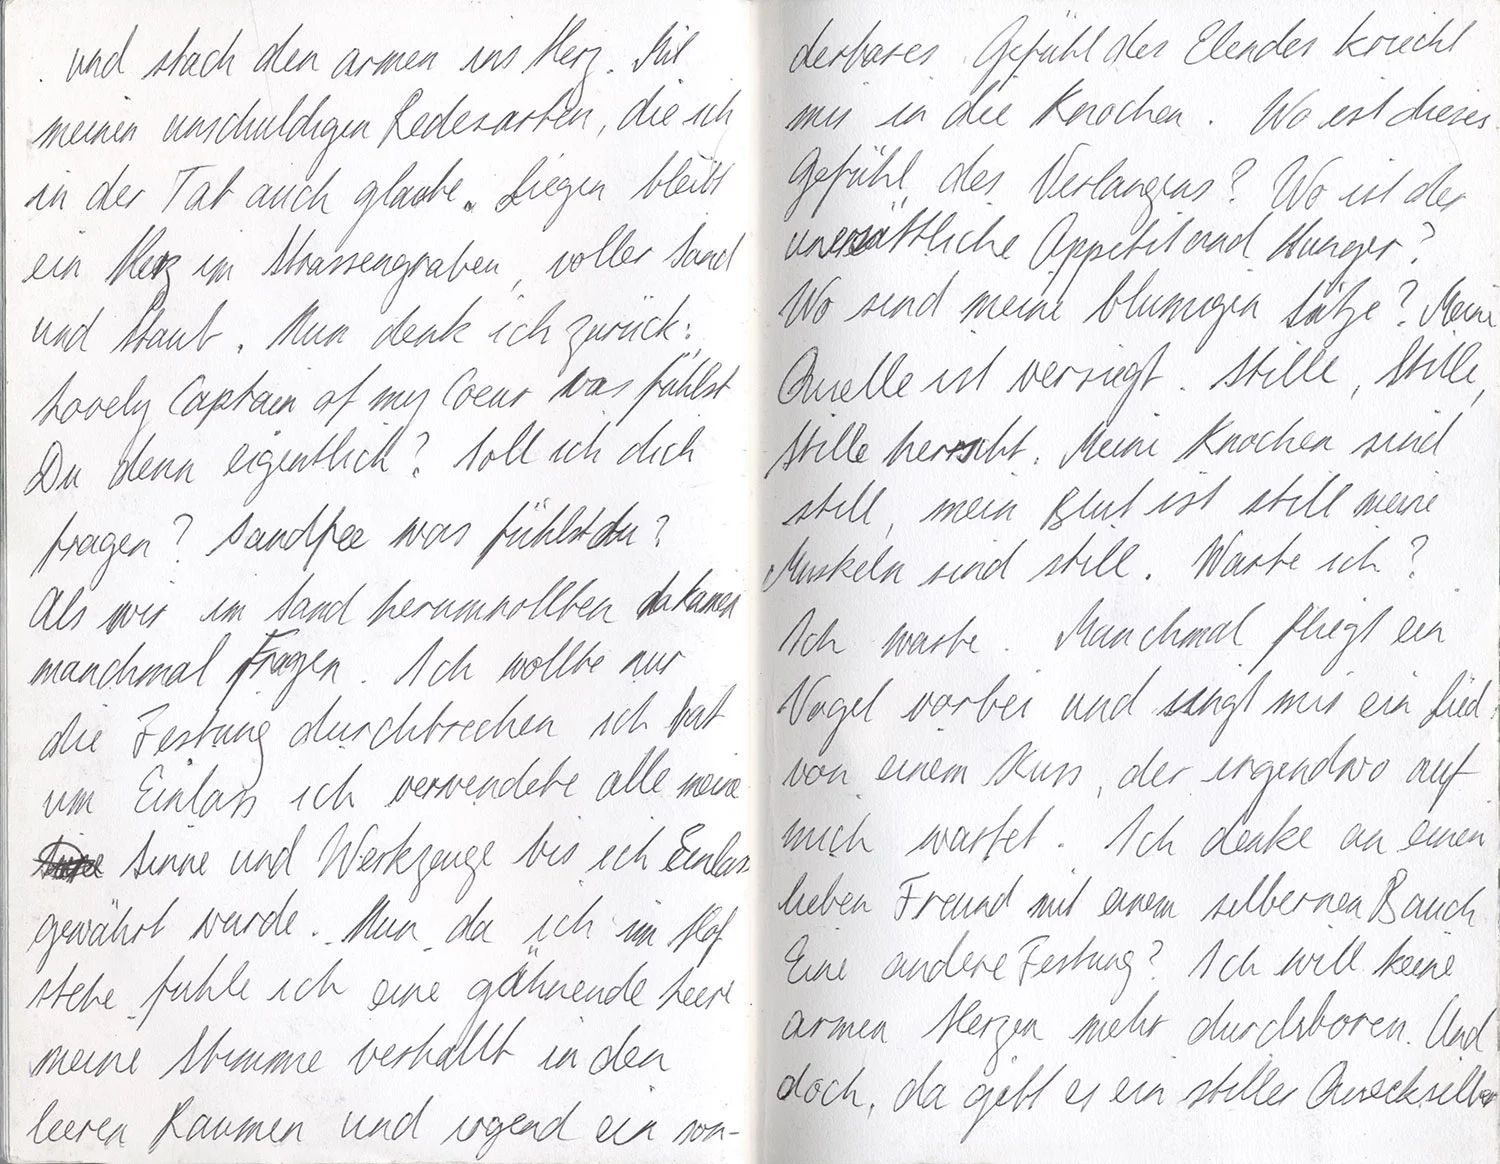 und stach den armen ins Herz. Mit
meinen unschuldigen Redesarten, die ich
in der Tat auch glaube. Liegen bleibt
ein Herz im Strassengraben, voller Sand
und Staub. Nun denk ich zurück:
Lovely Captain of my Coeur was fühlst
Du denn eigentlich? Soll ich dich
fragen? Sandfee was fühlst du?
Als wir im Sand herumrollten da kamen
manchmal Fragen. Ich wollte nur
die Festung durchbrechen ich bat
um Einlass ich verwendete alle meine
Sinne und Werkzeuge bis ich Einlass
gewährt wurde. Nun da ich im Hof
stehe fühle ich eine gähnende Leere
meine Stimme verhallt in den
leeren Räumen und irgend ein son-
derbares Gefühl des Elendes kriecht
mir in die Knochen. Wo ist dieses
Gefühl des Verlangens? Wo ist der
unersättliche Appetit und Hunger?
Wo sind meine blumigen Sätze? Meine
Quelle ist versiegt. Stille, Stille,
Stille herrscht. Meine Knochen sind
still, mein Blut ist still meine
Muskeln sind still. Warte ich?
Ich warte. Manchmal fliegt ein
Vogel vorbei und singt mir ein Lied
von einem Kuss, der irgendwo auf
mich wartet. Ich denke an einen
lieben Freund mit einem silbernen Bauch
Eine andere Festung? Ich will keine
armen Herzen mehr durchboren. Und
doch, da gibt es ein stiller Quecksilber